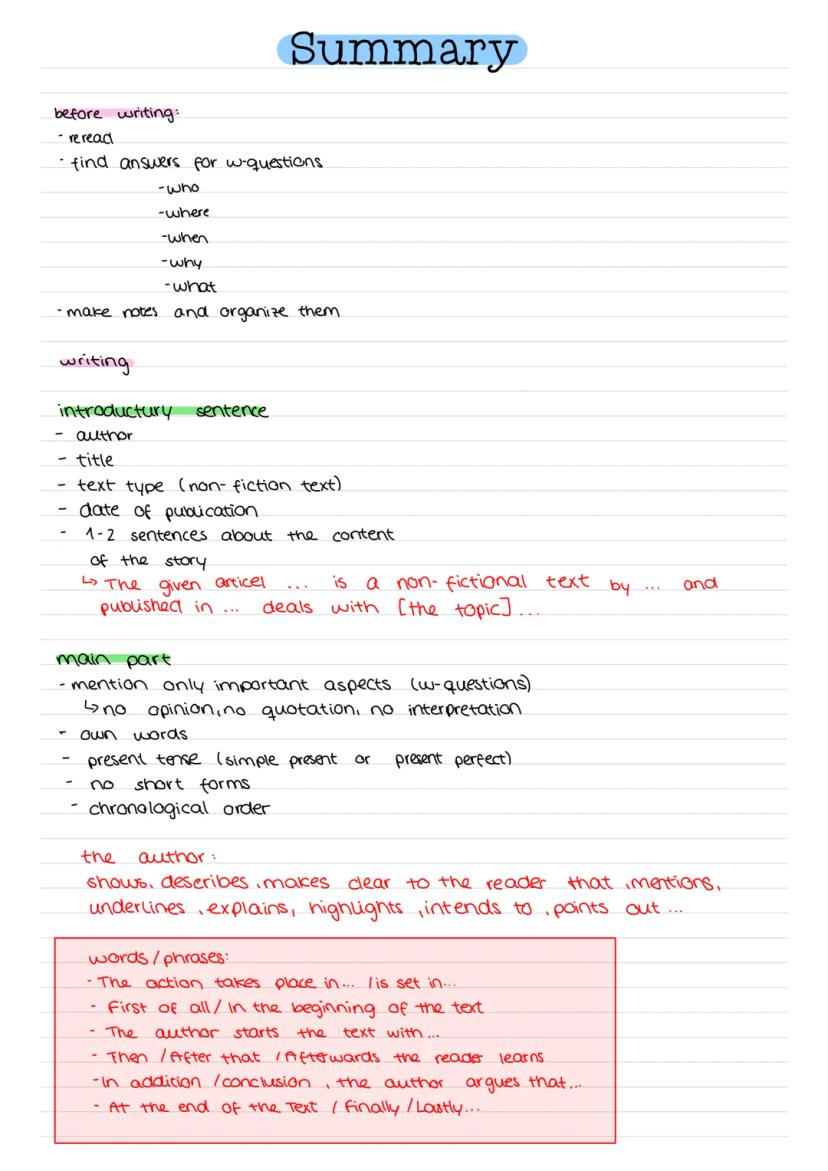 Summary
before writing:
- reread
- find answers for w-questions
- who
- where
- when
- why
- what
- make notes and organize them
writing
introductury sentence
- author
- title
- text type (non-fiction text)
- date of publication
- 1-2 sentences about the content
of the story
↳ The given articel ... is a non-fictional text by ... and
published in ... deals with [the topic] ...
main part
- mention only important aspects (w-questions)
↳ no opinion, no quotation, no interpretation
- own words
- present tense (simple present or present perfect)
- no short forms
- chronological order
the author:
shows, describes, makes clear to the reader that, mentions,
underlines, explains, highlights, intends to, points out ...
words/phrases:
- The action takes place in... / is set in...
- First of all / In the beginning of the text
- The author starts the text with ...
- Then / After that / Afterwards the reader learns
- In addition / conclusion, the author argues that...
- At the end of the Text / Finally / Lastly...